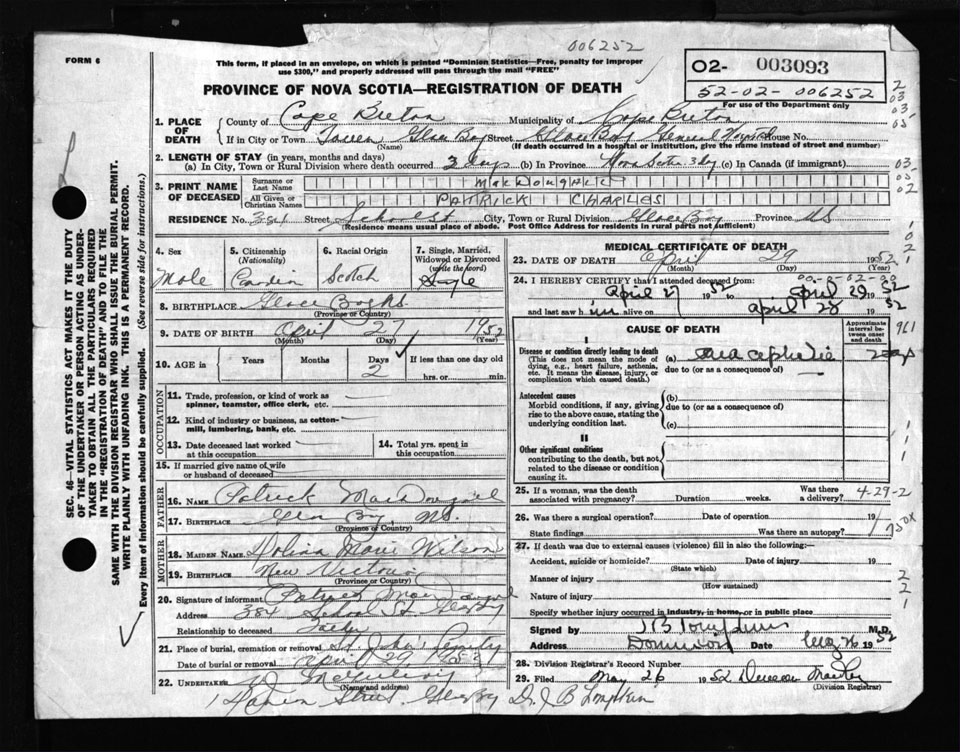 006252
FORM 6
This form, if placed in an envelope, on which is printed "Dominion Statistics—Free, penalty for improper
use $300," and properly addressed will pass through the mail "FREE"
O2- 003093
52-02- 006252
For use of the Department only
PROVINCE OF NOVA SCOTIA—REGISTRATION OF DEATH
1. PLACE OF DEATH
County of Cape Breton Municipality of Cape Breton
If in City or Town Glace Bay Street Glace Bay General Hospital House No.
(Name) (If death occurred in a hospital or institution, give the name instead of street and number)
2. LENGTH OF STAY (in years, months and days)
(a) In City, Town or Rural Division where death occurred 2 days (b) In Province Nova Scotia (c) In Canada (if immigrant)
3. PRINT NAME OF DECEASED
Surname or Last Name MacDougall
All Given or Christian Names PATRICK CHARLES
RESIDENCE No. 384 Street School St City, Town or Rural Division Glace Bay Province NS
(Residence means usual place of abode. Post Office Address for residents in rural parts not sufficient)
4. Sex
Male
5. Citizenship (Nationality)
6. Racial Origin
Scotch
7. Single, Married, Widowed or Divorced (write the word)
Single
8. BIRTHPLACE Glace Bay NS
(Province or Country)
9. DATE OF BIRTH April 27 1952
(Month) (Day) (Year)
10. AGE in
Years Months Days
2
If less than one day old
hrs. or min.
OCCUPATION
11. Trade, profession, or kind of work as
spinner, teamster, office clerk, etc.
12. Kind of industry or business, as cotton-
mill, lumbering, bank, etc.
13. Date deceased last worked
at this occupation
14. Total yrs. spent in
this occupation
15. If married give name of wife
or husband of deceased
FATHER
16. NAME Patrick MacDougall
17. BIRTHPLACE NS.
(Province or Country)
MOTHER
18. MAIDEN NAME Marie Wilson
19. BIRTHPLACE New Victoria
(Province or Country)
20. Signature of informant Patrick MacDougall
Address 384 School St
Relationship to deceased Father
21. Place of burial, cremation or removal St. John's
Date of burial or removal April 29 1952
22. UNDERTAKER
(Name and address)
MEDICAL CERTIFICATE OF DEATH
23. DATE OF DEATH April 29 1952
(Month) (Day) (Year)
24. I HEREBY CERTIFY that I attended deceased from:
00-0-02-00
April 27 1952 to April 29 1952
and last saw h im alive on April 28 1952
CAUSE OF DEATH
Approximate interval between onset and death
961
I
Disease or condition directly leading to death
(This does not mean the mode of
dying, e.g., heart failure, asthenia,
etc. It means the disease, injury, or
complication which caused death.)
(a)
due to (or as a consequence of)
Antecedent causes
Morbid conditions, if any, giving
rise to the above cause, stating the
underlying condition last.
(b)
due to (or as a consequence of)
(c)
II
Other significant conditions
contributing to the death, but not
related to the disease or condition
causing it.
25. If a woman, was the death
associated with pregnancy? Duration weeks. Was there
a delivery?
4-29-2
26. Was there a surgical operation? Date of operation 19
State findings Was there an autopsy?
27. If death was due to external causes (violence) fill in also the following:—
Accident, suicide or homicide? Date of injury 19
(State which)
Manner of injury
(How sustained)
Nature of injury
Specify whether injury occurred in industry, in home, or in public place
Signed by M.D.
Address Dominion Date 26 1952
28. Division Registrar's Record Number
29. Filed May 26 1952 Duncan
(Division Registrar)
SEC. 46—VITAL STATISTICS ACT MAKES IT THE DUTY
OF THE UNDERTAKER OR PERSON ACTING AS UNDER-
TAKER TO OBTAIN ALL THE PARTICULARS REQUIRED
IN THE "REGISTRATION OF DEATH" AND TO FILE THE
SAME WITH THE DIVISION REGISTRAR WHO SHALL ISSUE THE BURIAL PERMIT.
WRITE PLAINLY WITH UNFADING INK. THIS IS A PERMANENT RECORD.
Every item of Information should be carefully supplied. (See reverse side for instructions.)